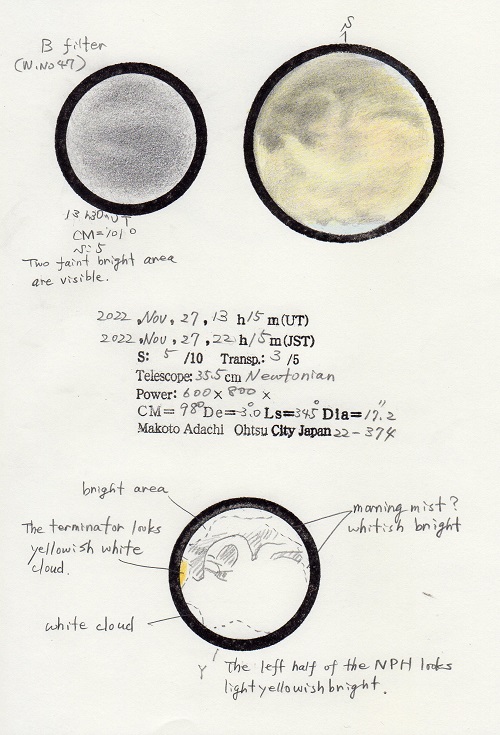 S
B filter
(W.No 47)
13 h30m UT
CM=101°
S=5
Two faint bright area
are visible.
2022 ,Nov, 27, 13 h 15 m(UT)
2022 ,Nov, 27, 22 h 15 m(JST)
S: 5 /10 Transp.: 3 /5
Telescope: 35.5 cm Newtonian
Power: 600× 800 ×
CM= 98° De=-3.0° Ls=345° Dia=17.2"
Makoto Adachi Ohtsu City Japan 22-374
bright area
morning mist?
whitish bright
The terminator looks
yellowish white
cloud.
white cloud
Y The left half of the NPH looks
light yellowish bright.